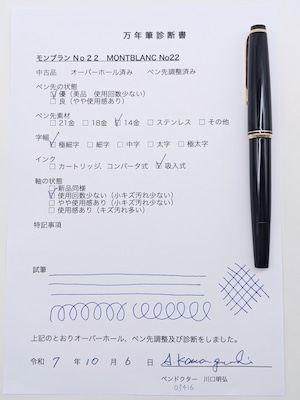 万年筆診断書
モンブランNo22 MONTBLANC No22
中古品 オーバーホール済み ペン先調整済み
ペン先の状態
☑優（美品 使用回数少ない）
□良（やや使用感あり）
ペン先素材
□21金 □18金 ☑14金 □ステンレス □その他
字幅
☑極細字 □細字 □中字 □太字 □極太字
インク
□カートリッジ、コンバータ式 ☑吸入式
軸の状態
□新品同様
☑使用回数少ない（小キズ汚れ少ない）
□やや使用感あり（小キズ汚れ少ない）
□使用感あり（キズ汚れ多い）
特記事項
試筆
上記のとおりオーバーホール、ペン先調整及び診断をしました。
令和 7 年 10 月 6 日 A.Kawaguchi
ペンドクター 川口明弘
05416